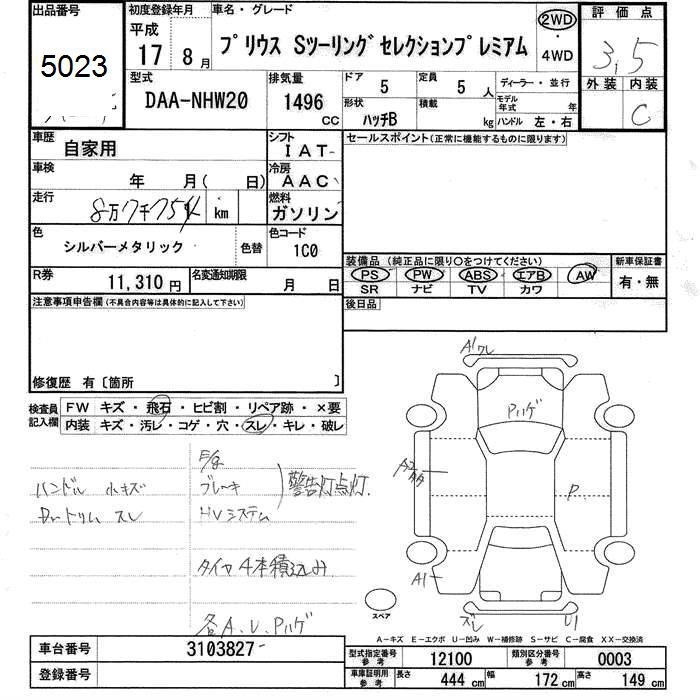 出品番号 初度登録年月 車名・グレード 評価点
5023
平成
17 8月
プリウス Sツーリングセレクションプレミアム
2WD
・
4WD
3,5
外装 内装
C
型式 排気量 ドア 定員 ディーラー・並行
DAA-NHW20 1496 CC 5 5人
形状 積載 モデル年式 年
ハッチB kg ハンドル 左・右
車歴 シフト セールスポイント(正常に機能するものに限ります)
自家用 IAT
車検 冷房
年 月( 日) AAC
走行 燃料
8万7千75 km ガソリン
色 色コード
シルバーメタリック 色替 1C0
装備品(純正品に限り○をつけてください) 新車保証書
PS PW ABS エアB AW 有・無
SR ナビ TV カワ
R券 名変通知期限
11,310円 月 日
後日品
注意事項申告欄(不具合内容等は具体的に記入して下さい)
修復歴 有〔箇所 〕
検査員記入欄
FW キズ・飛石・ヒビ割・リペア跡・×要
内装 キズ・汚レ・コゲ・穴・スレ・キレ・破レ
ハンドル 小キズ
Drトリム スレ
ブレーキ
HVシステム
警告灯点灯.
タイヤ4本積込み.
各A、U、Pハゲ
A1ワレ
Pハゲ
P
A1
ズレ
U1
スペア
A-キズ E-エクボ U-凹み W-補修跡 S-サビ C-腐食 XX-交換済
車台番号 3103827-
登録番号
型式指定番号参考 12100 類別区分番号参考 0003
車庫証明用参考 長さ 444cm 幅 172cm 高さ 149cm